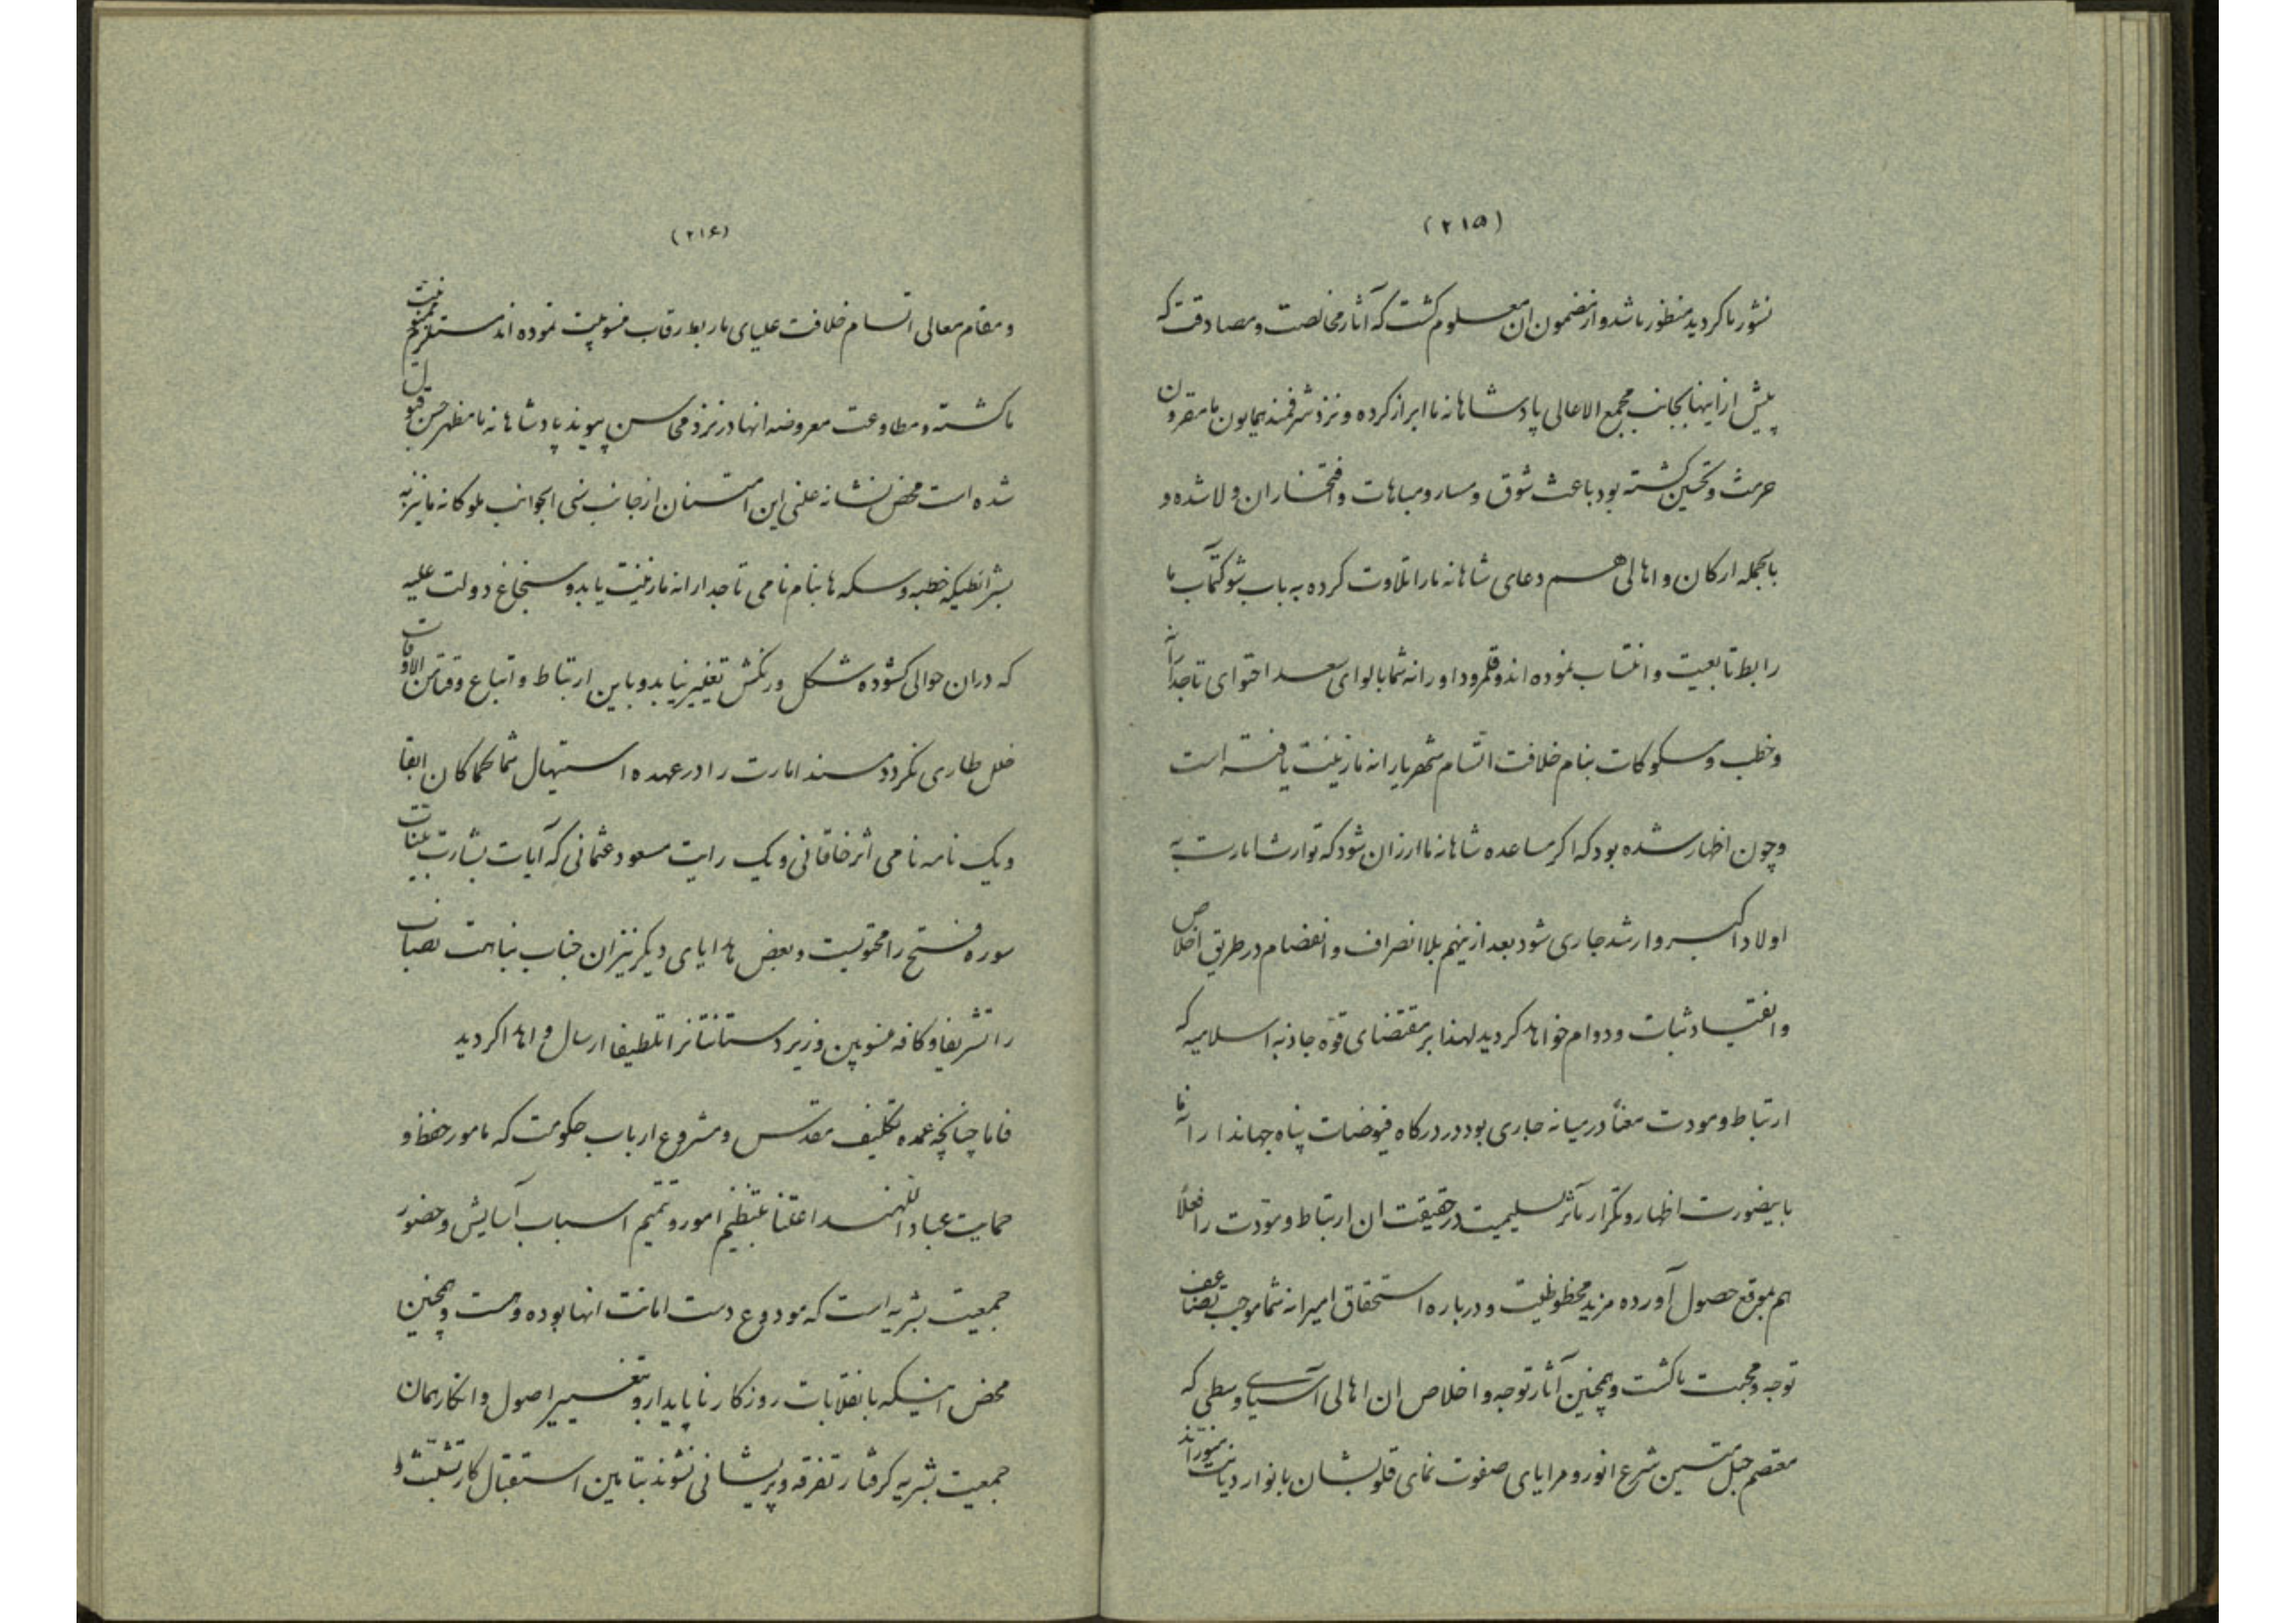 (۲۱۵)
نشور ما کردید منظور ما شد و از مضمون ان معلوم کشت که آثار مخالصت و مصادقت که
پیش از اینها بجانب مجمع الاعالی پادشاهانه ما ابراز کرده و نزد شرفمند همایون ما مقرون
حرمت و تحسین کشته بود باعث شوق و مسار و مباهات و افتخار ان ولا شده و
بالجمله ارکان و اهالی هم دعای شاهانه ما را تلاوت کرده به باب شوکتمآب ما
رابط تابعیت و انتساب نموده اند و قلمرو داورانه شما با لوای سعد احتوای تاجدارانه
و خطب و مسکوکات بنام خلافت اتسام شهریارانه ما زینت یافته است
و چون اظهار شده بود که اکر مساعده شاهانه ما ارزان شود که توارث امارت به
اولاد اکبر و ارشد جاری شود بعد ازینهم بلا انصراف و انفصام در طریق اخلاص
و انقیاد ثبات و دوام خواهد کردید لهذا بر مقتضای قوه جاذبه اسلامیه که
ارتباط و مودت معناً در میانه جاری بود در درکاه فیوضات پناه جهاندارانه ما
باینصورت اظهار و تکرار مآثر سلیمیت در حقیقت ان ارتباط و مودت را فعلاً
هم بموقع حصول آورده مزید محظوظیت و درباره استحقاق امیرانه شما موجب تضاعف
توجه و محبت ما کشت و همچنین آثار توجه و اخلاص ان اهالی آسیای وسطی که
معتصم حبل متین شرع انور و مرایای صفوت نمای قلوبشان بانوار دیانت منور اند
(۲۱۶)
و مقام معالی اتسام خلافت علیای ما ربط رقاب منسوبیت نموده اند مستلزم ممنونیت
ما کشته و مطاوعت معروضه انها در نزد محاسن پیوند پادشاهانه ما مظهر حسن قبول
شده است محض نشانه علنی این امتنان از جانب سنی الجوانب ملوکانه ما نیز به
بشرائطیکه خطبه و سکه ها بنام نامی تاجدارانه ما زینت یابد و سنجاغ دولت علیه
که دران حوالی کشوده شکل و رنکش تغییر نیابد و باین ارتباط و اتباع وقتا من الاوقات
خلل طاری نکردد مسند امارت را در عهده استیهال شما کماکان ابقا
و یک نامه نامی اثر خاقانی و یک رایت مسعود عثمانی که آیات بشارت بینات
سوره فتح را محتویست و بعض هدایای دیکر نیز ان جناب نباهت نصاب
را تشریفا و کافه منسوبین و زیردستانتانرا تلطیفا ارسال و اهدا کردید
فاما چنانچه عمده تکلیف مقدس و مشروع ارباب حکومت که مامور حفظ و
حمایت عباد اللهند اعتنا بتنظیم امور و تتمیم اسباب آسایش و حضور
جمعیت بشریه است که مودوع دست امانت انها بوده و هست و همچنین
محض اینکه بانقلابات روزکار ناپایدار و تغییر اصول و انکار همان
جمعیت بشریه کرفتار تفرقه و پریشانی نشوند بتامین استقبال کار تشبث و